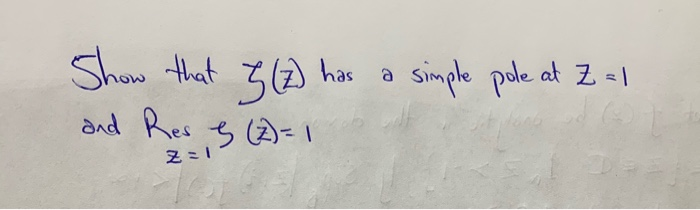 Show that ζ(z) has a simple pole at z = 1
and Res ζ(z) = 1
z = 1